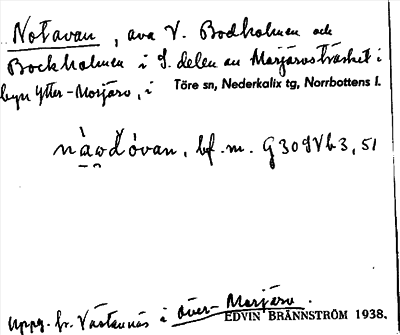 Notavan, ava V. Bodholmen och
Bockholmen i S. delen av Morjärvsträsket i
byn Ytter-Morjärv, i Töre sn, Nederkalix tg, Norrbottens l.
bf. m. G309Vb3, 51
Uppg. fr. Västannäs i Över-Morjärv.
EDVIN BRÄNNSTRÖM 1938.